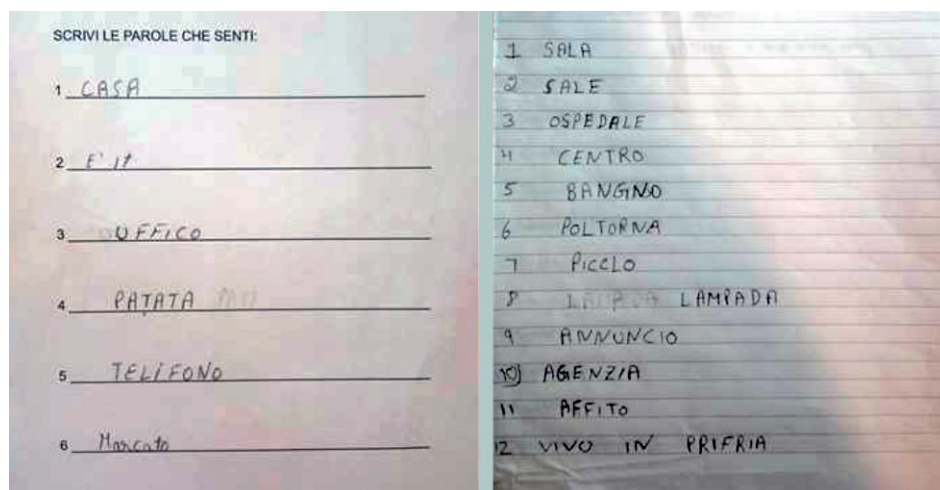 SCRIVI LE PAROLE CHE SENTI:
1 CASA
2 E' it
3 UFFICO
4 PATATA
5 TELIFONO
6 Marcato
1 SALA
2 SALE
3 OSPEDALE
4 CENTRO
5 BANGNO
6 POLTORNA
7 PICCLO
8 LAMPADA
9 ANNUNCIO
10) AGENZIA
11 AFFITO
12 VIVO IN PRIFRIA